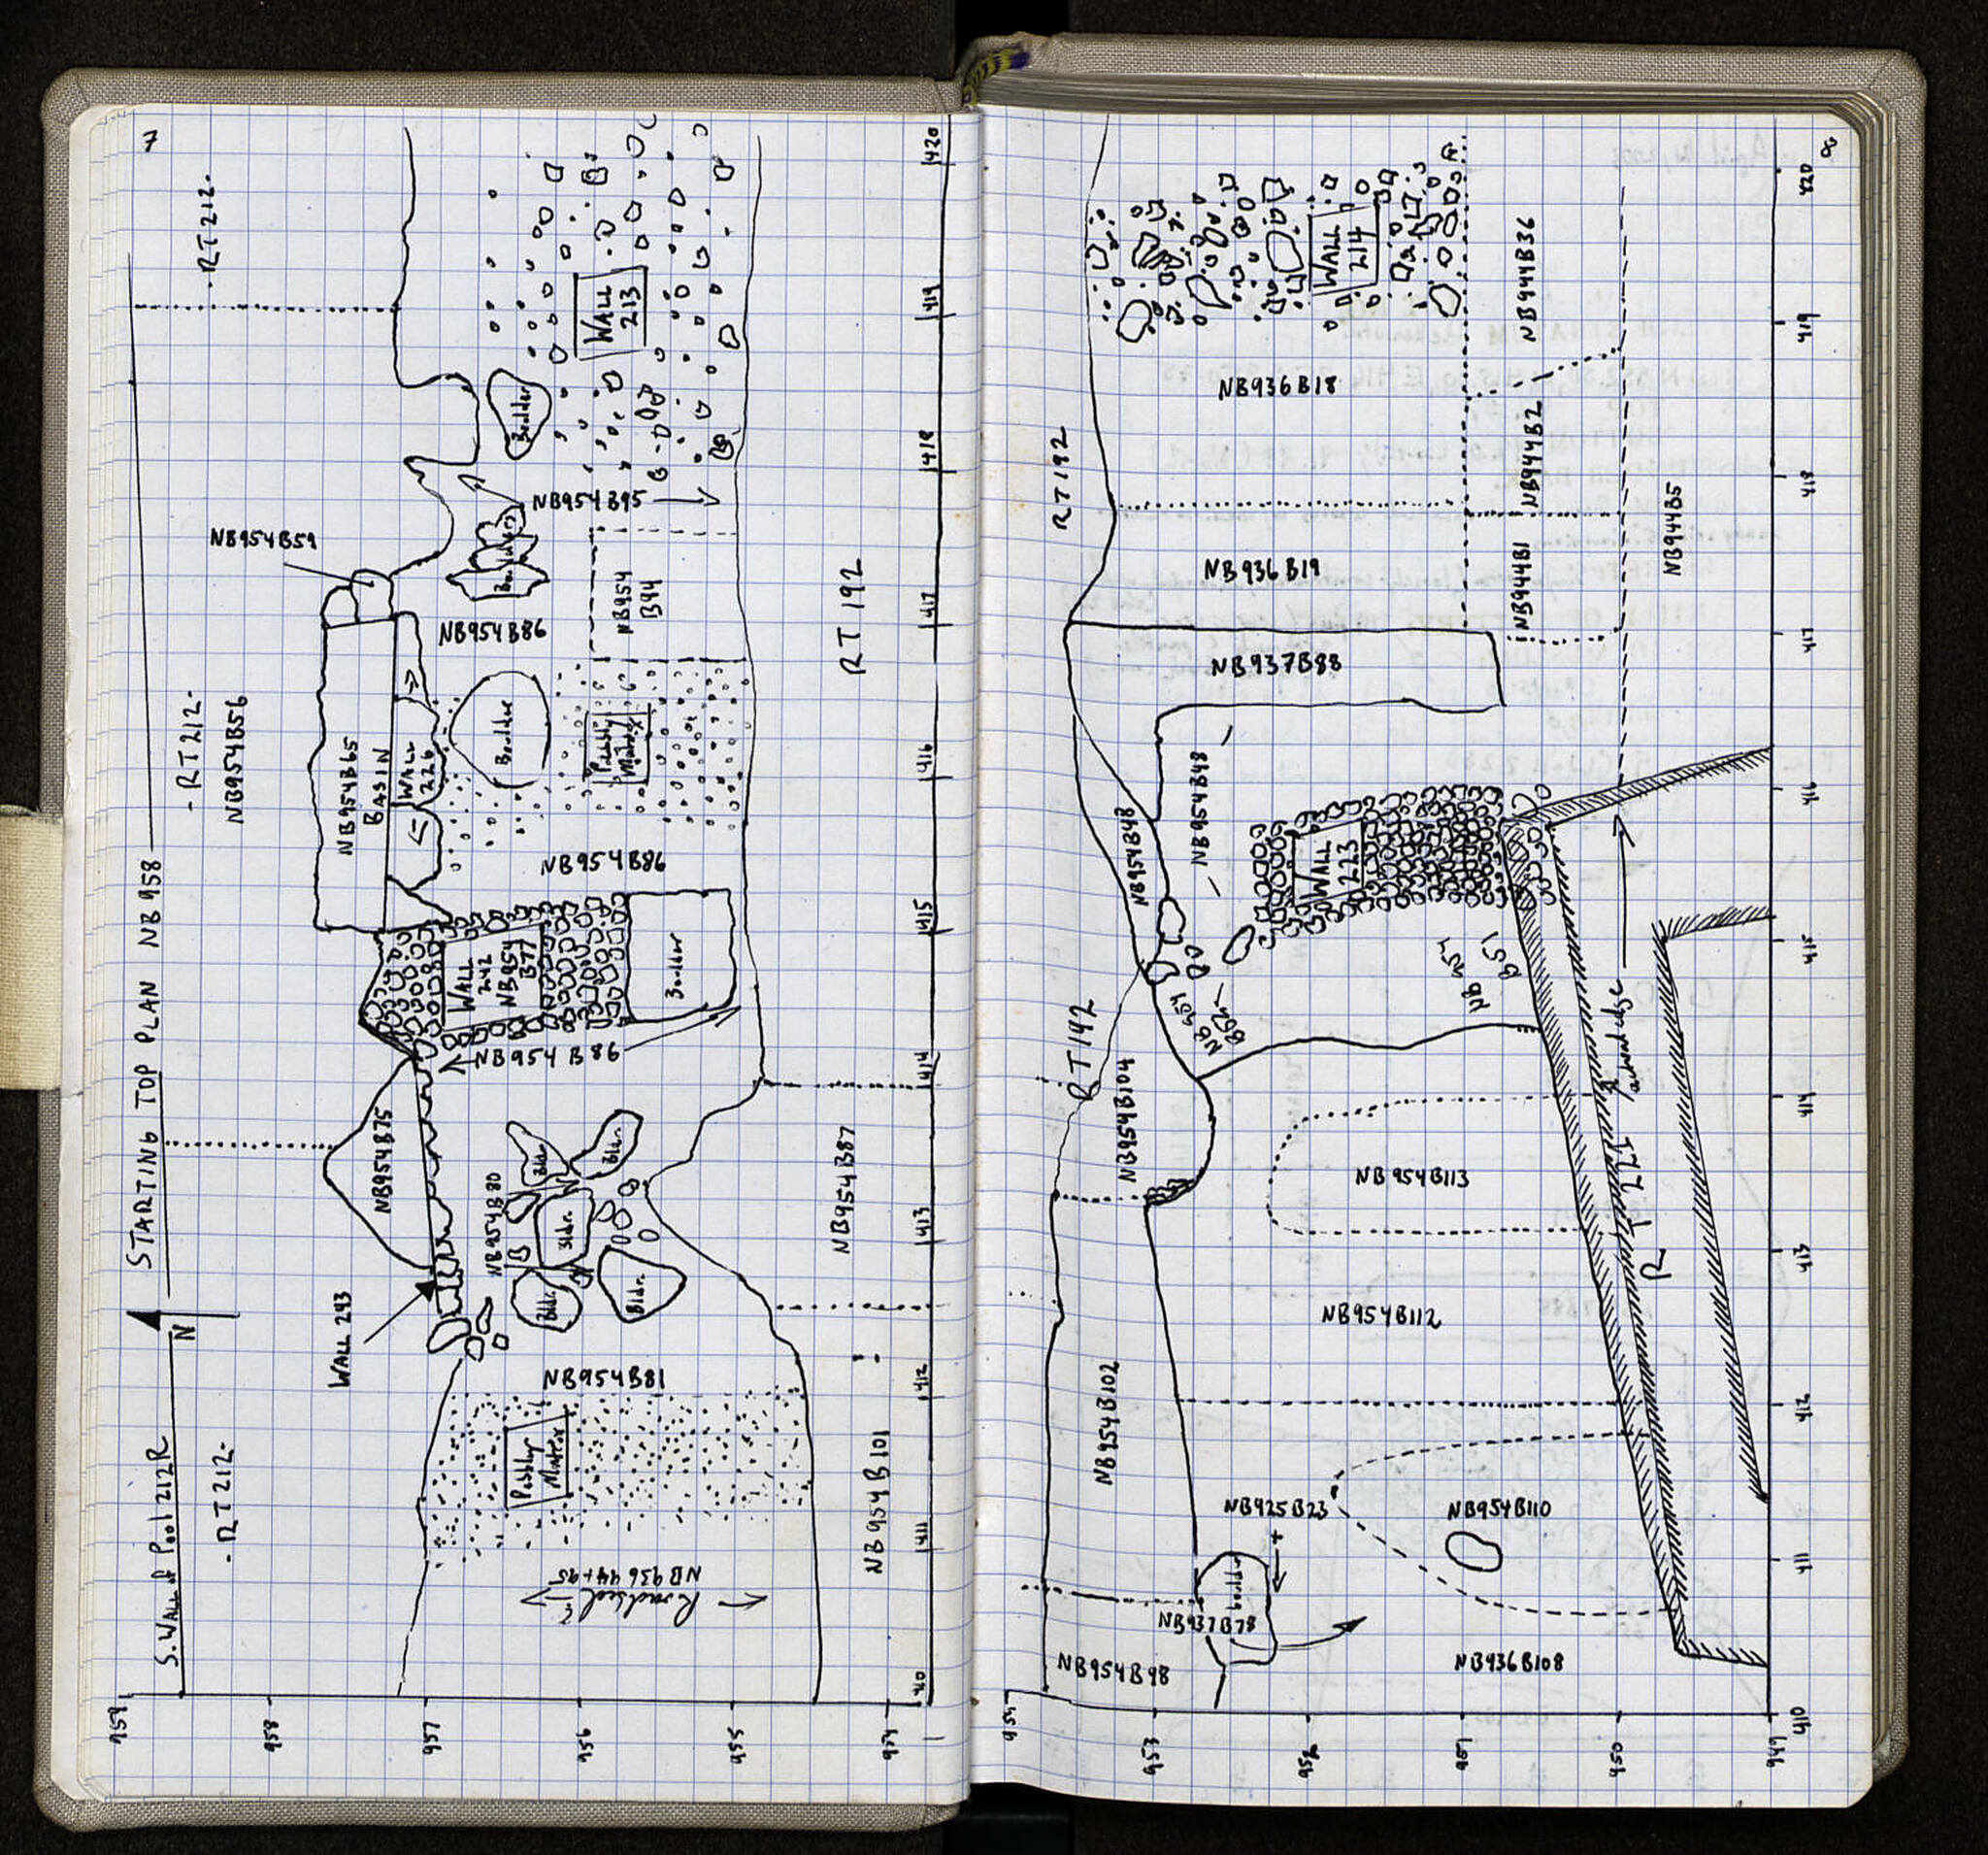 7
STARTING TOP PLAN NB 958
S. Wall of Pool 212R
N
-RT212-
-RT212-
-RT212-
NB954B56
NB954B59
NB954B65
BASIN
WALL
226
NB954B75
WALL 243
WALL
242
NB954
B77
NB954B86
NB954B86
NB954B86
NB954B95
NB954
B94
Boulder
Boulder
Boulder
Boulder
WALL
213
Pebbly
Matrix
NB954B80
Bldr.
Bldr.
Bldr.
Bldr.
Bldr.
NB954B81
Pebbly
Matrix
Roadbed
NB936 44+45
NB954B87
NB954B101
RT192
959
958
957
956
955
954
410
411
412
413
414
415
416
417
418
419
420
8
RT192
RT192
WALL
214
NB936B18
NB936B19
NB937B88
NB944B36
NB944B2
NB944B1
NB944B5
NB954B48
NB954B48
WALL
223
NB954
B51
NB954
NB954B104
NB954B113
NB954B112
NB954B102
NB925B23
NB954B110
boulder
NB937B78
NB954B98
NB936B108
RT221
954
953
952
951
950
949
410
411
412
413
414
415
416
417
418
419
420